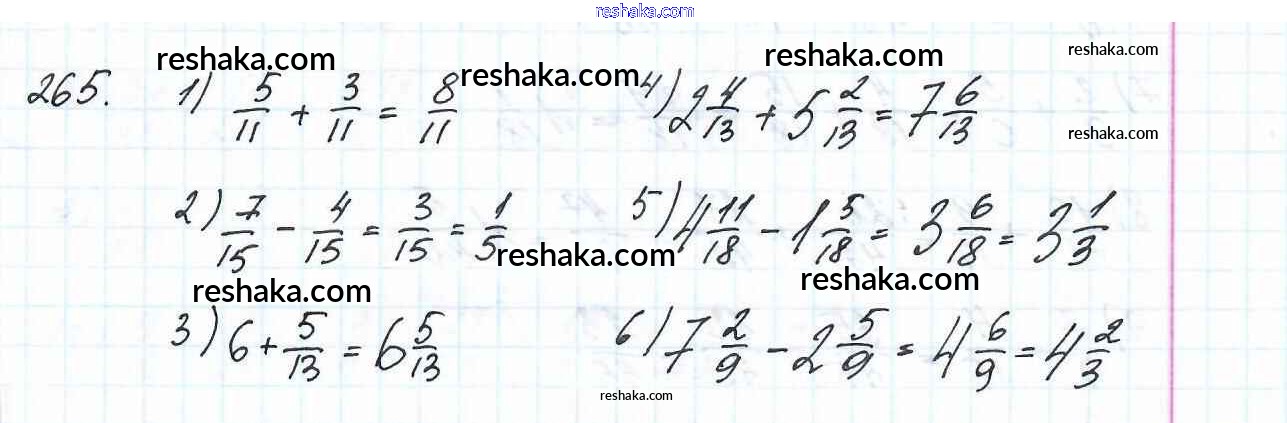 reshaka.com
reshaka.com reshaka.com reshaka.com reshaka.com
265. 1) 5/11 + 3/11 = 8/11 4) 2 4/13 + 5 2/13 = 7 6/13
reshaka.com
2) 7/15 - 4/15 = 3/15 = 1/5 5) 4 11/18 - 1 5/18 = 3 6/18 = 3 1/3
reshaka.com
reshaka.com reshaka.com
3) 6 + 5/13 = 6 5/13 6) 7 2/9 - 2 5/9 = 4 6/9 = 4 2/3
reshaka.com